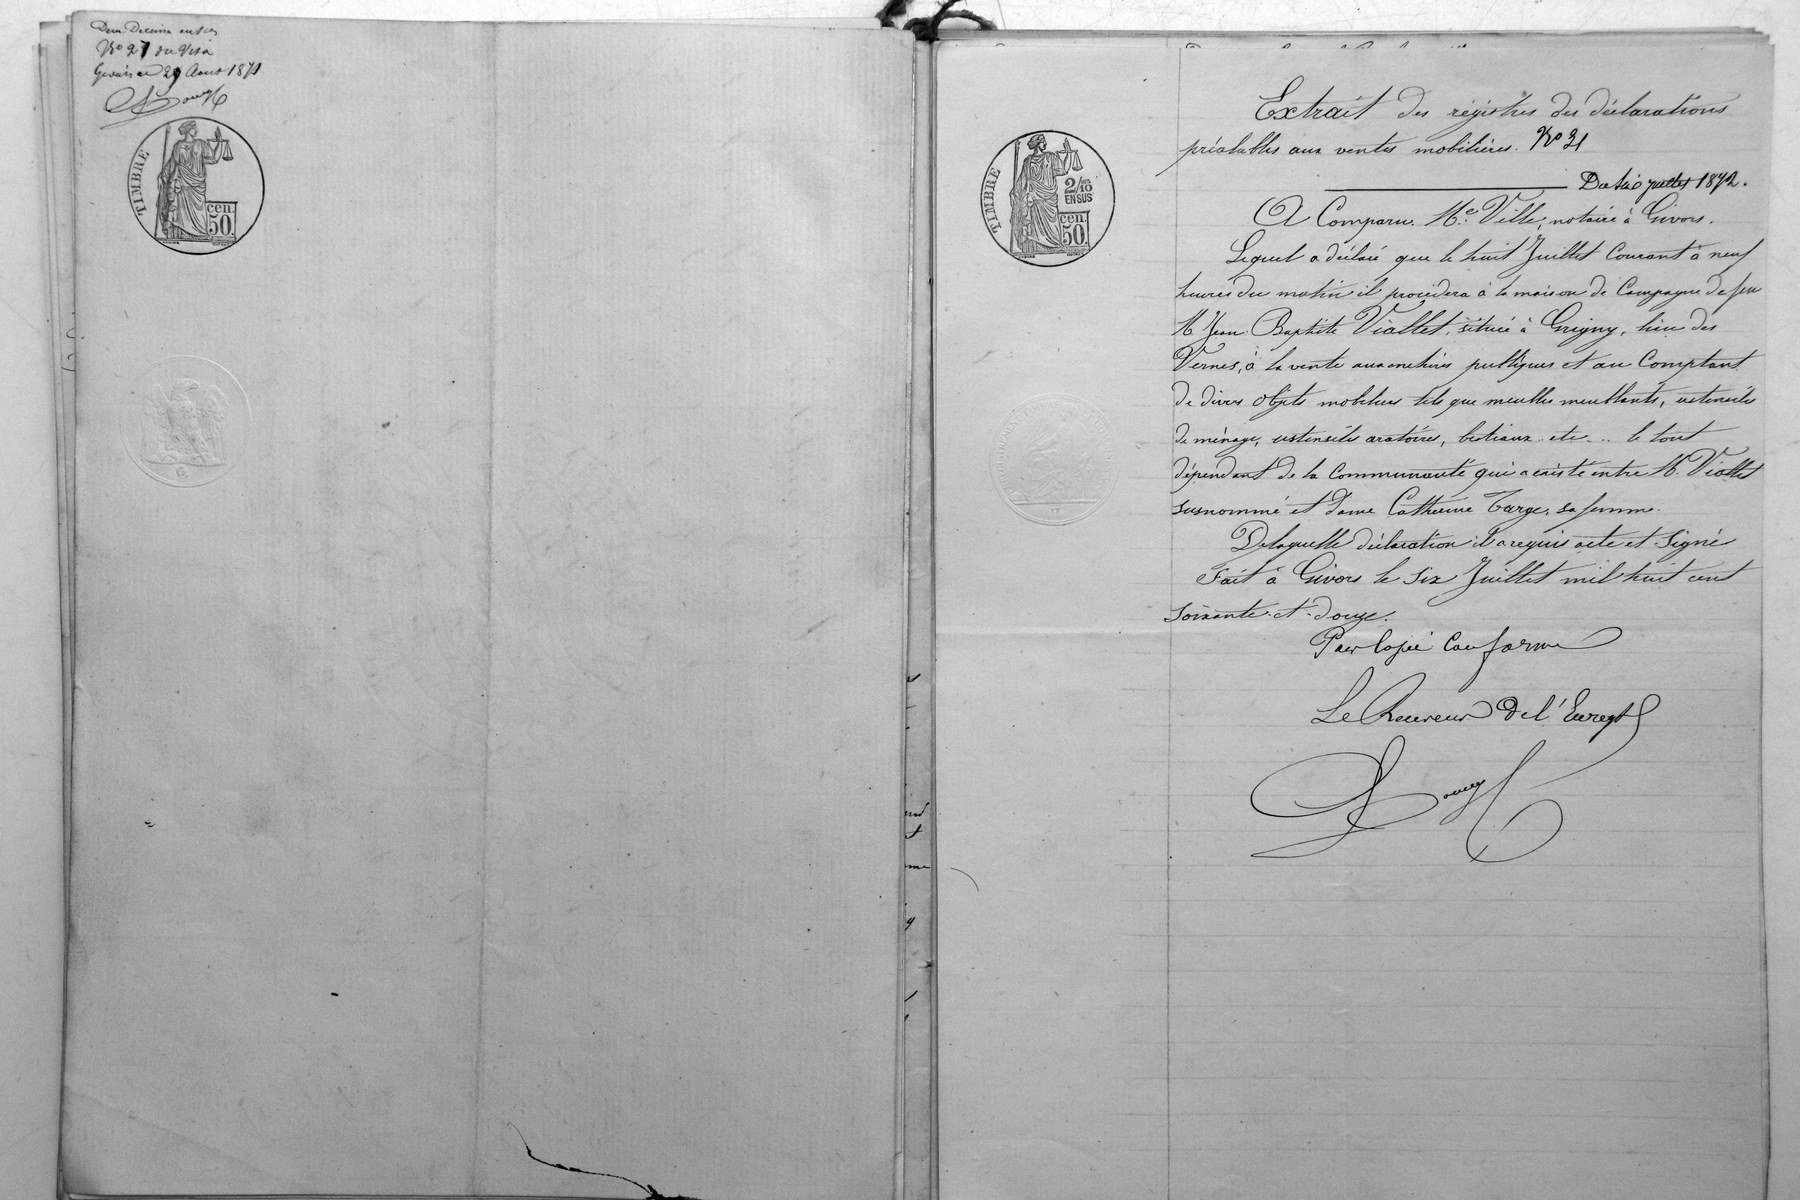 Deux Décimes en sus
No 27 du Visa
Givors le 29 Aout 1871
TIMBRE
cen.
50.
Extrait des registres des déclarations
préalables aux ventes mobilières. No 31
Du 6 juillet 1872.
TIMBRE
2/10
EN SUS
cen.
50.
A Comparu Me Ville, notaire à Givors.
Lequel a déclaré que le huit Juillet Courant à neuf
heures du matin il procédera à la maison de Campagne de feu
M Jean-Baptiste Viallet, située à Grigny, lieu des
Vernes, à la vente aux enchères publiques et au Comptant
de divers objets mobiliers tels que meubles meublants, ustensiles
de ménage, ustensiles aratoires, bestiaux etc... le tout
dépendant de la Communauté qui a existé entre M. Viallet
susnommé et dame Catherine Targe, sa femme.
De laquelle déclaration il a requis acte et Signé
Fait à Givors le Six Juillet mil huit cent
soixante-et-douze.
Pour Copie Conforme
Le Receveur De l'Enregt